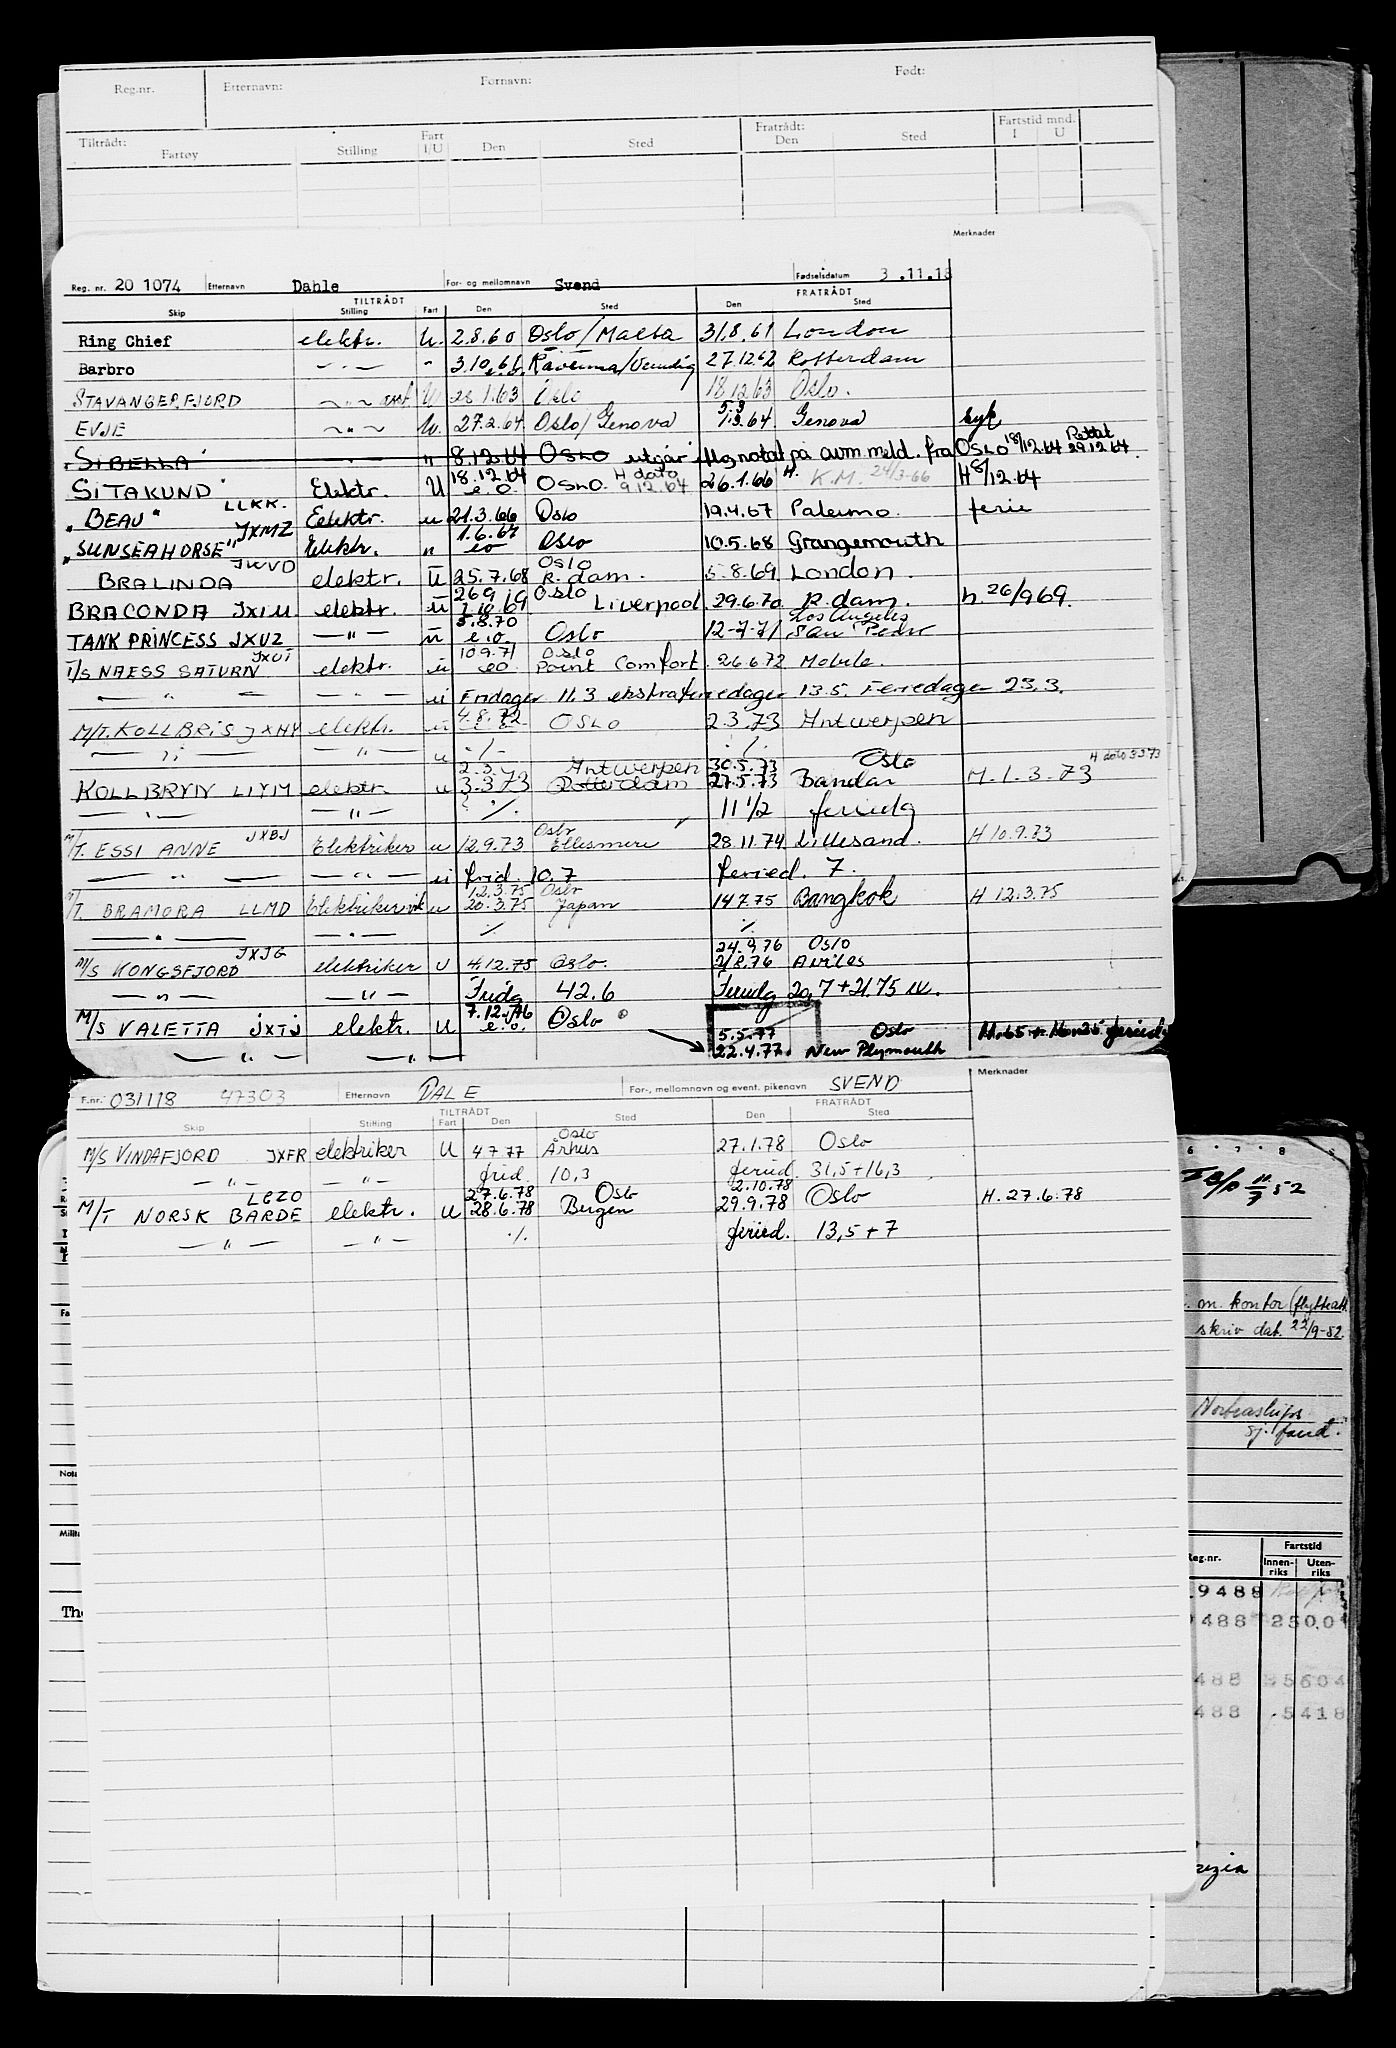 Reg.nr. Etternavn: Fornavn: Født:
Tiltrådt: Fartøy Stilling Fart I/U Den Sted Fratrådt: Den Sted Fartstid mnd. I U
Merknader
Reg. nr. 20 1074 Etternavn Dahle For- og mellomnavn Svend Fødselsdatum 3.11.18
TILTRÅDT FRATRÅDT
Skip Stilling Fart Den Sted Den Sted
Ring Chief elektr. U. 2.8.60 Oslo/Malta 31.8.61 London
Barbro — " — " 3.10.61 Ravenna/Venedig 27.12.62 Rotterdam
STAVANGERFJORD ~ " ~ asst U 28.1.63 Oslo 18.12.63 Oslo.
EVJE ~ " ~ U. 27.2.64 Oslo/Genova 5.3.64 Genova syk
SIBELLA " " 8.12.64 OSLO utgår iflg notat på avm.meld. fra OSLO 18/12.64 Rettet 29.12.64.
SITAKUND Elektr. U 18.12.64 e.o. OSLO. H dato 9.12.64 26.1.66 H. K.M. 24/3-66 H 8/12.64
"BEAU" LLKK. Elektr. u 21.3.66 Oslo 19.4.67 Palermo. ferie
"SUNSEAHORSE" JXMZ Elektr. " 1.6.67 eo Oslo 10.5.68 Grangemouth
BRALINDA JWVD elektr. U 25.7.68 Oslo R.dam. 5.8.69 London.
BRACONDA JXIU elektr. u 26.9.69 Oslo 1.10.69 Liverpool 29.6.70 R.dam. h. 26/969.
TANK PRINCESS JXVZ — " — u 5.8.70 e.o. Oslo 12-7-71 Los Angeles San Pedro
T/S NAESS SATURN JXUI elektr. u 10.9.71 eo Oslo Point Comfort. 26.6.72 Mobile.
— " — — " — u Fridager 11.3 ekstraferiedager 13.5. Feriedager 23.3.
M/T. KOLLBRIS JXHY elektr. u 4.8.72 OSLO 2.3.73 Antwerpen
— " — — " — u ./. ./.
KOLLBRYN LIYM elektr. u 2.3. 3.3.73 Antwerpen Rotterdam 30.5.73 27.5.73 Oslo Bandar M. 1.3.73 H dato 3.3.73
— " — — " — ./. 11 1/2 feriedg
M/T. ESSI ANNE JXBJ Elektriker u 12.9.73 Oslo Ellesmere 28.11.74 Lillesand. H 10.9.73
— " — — " — u frid. 10.7 feried. 7.
M/T. BRAMORA LLMD Elektriker u 12.3.75 20.3.75 Oslo Japan 14.7.75 Bangkok H 12.3.75
— " — — " — ./. ./.
M/S KONGSFJORD JXJG elektriker U 4.12.75 Oslo. 24.9.76 21.8.76 Oslo Aviles
— " — — " — Fridg 42.6 Feriedg 20,7 + 21.75
M/S VALETTA JXTJ elektr. U 7.12.76 e.o. Oslo 5.5.77 Oslo
— " — — " — 22.4.77. New Plymouth
F.nr. 031118 47303 Etternavn DALE For-, mellomnavn og event. pikenavn SVEND Merknader
TILTRÅDT FRATRÅDT
Skip Stilling Fart Den Sted Den Sted
M/S VINDAFJORD JXFR elektriker U 4.7.77 Oslo Århus 27.1.78 Oslo
— " — — " — frid. 10,3 feried. 31,5 + 16,3
M/T NORSK BARDE LEZO elektr. U 27.6.78 28.6.78 Oslo Bergen 2.10.78 29.9.78 Oslo H. 27.6.78
— " — — " — ./. feried. 13,5 + 7
6 7 8
m. kontor (flytteatt.
skriv dat. 22/9-52.
Nortraships
sj. fond.
Reg.nr. Fartstid
Innen-riks Uten-riks
9488
488 2500
488 5604
488 5418